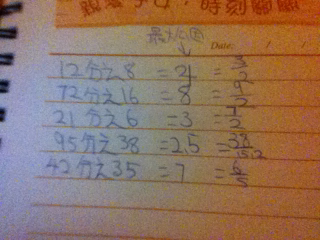 時刻關
最大公因
Date: / /
12分之8 =4 =3/2
72分之16 =8 =9/2
21分之6 =3 =7/2
95分之38 =2.5
42分之35 =7 =6/5